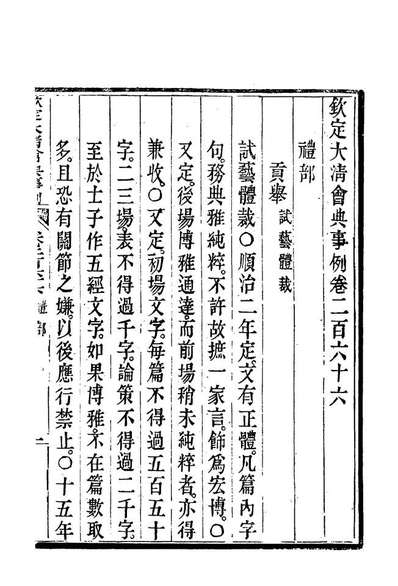 欽定大清會典事例卷二百六十六
禮部
貢舉 試藝體裁
試藝體裁〇順治二年定。文有正體。凡篇內字
句。務典雅純粹。不許故摭一家言。飾爲宏博。〇
又定。後場博雅通達。而前場稍未純粹者。亦得
兼收。〇又定。初場文字。每篇不得過五百五十
字。二三場表不得過千字。論策不得過二千字。
至於士子作五經文字。如果博雅。不在篇數取
多。且恐有關節之嫌。以後應行禁止。〇十五年
欽定大清會典事例
禮部
一